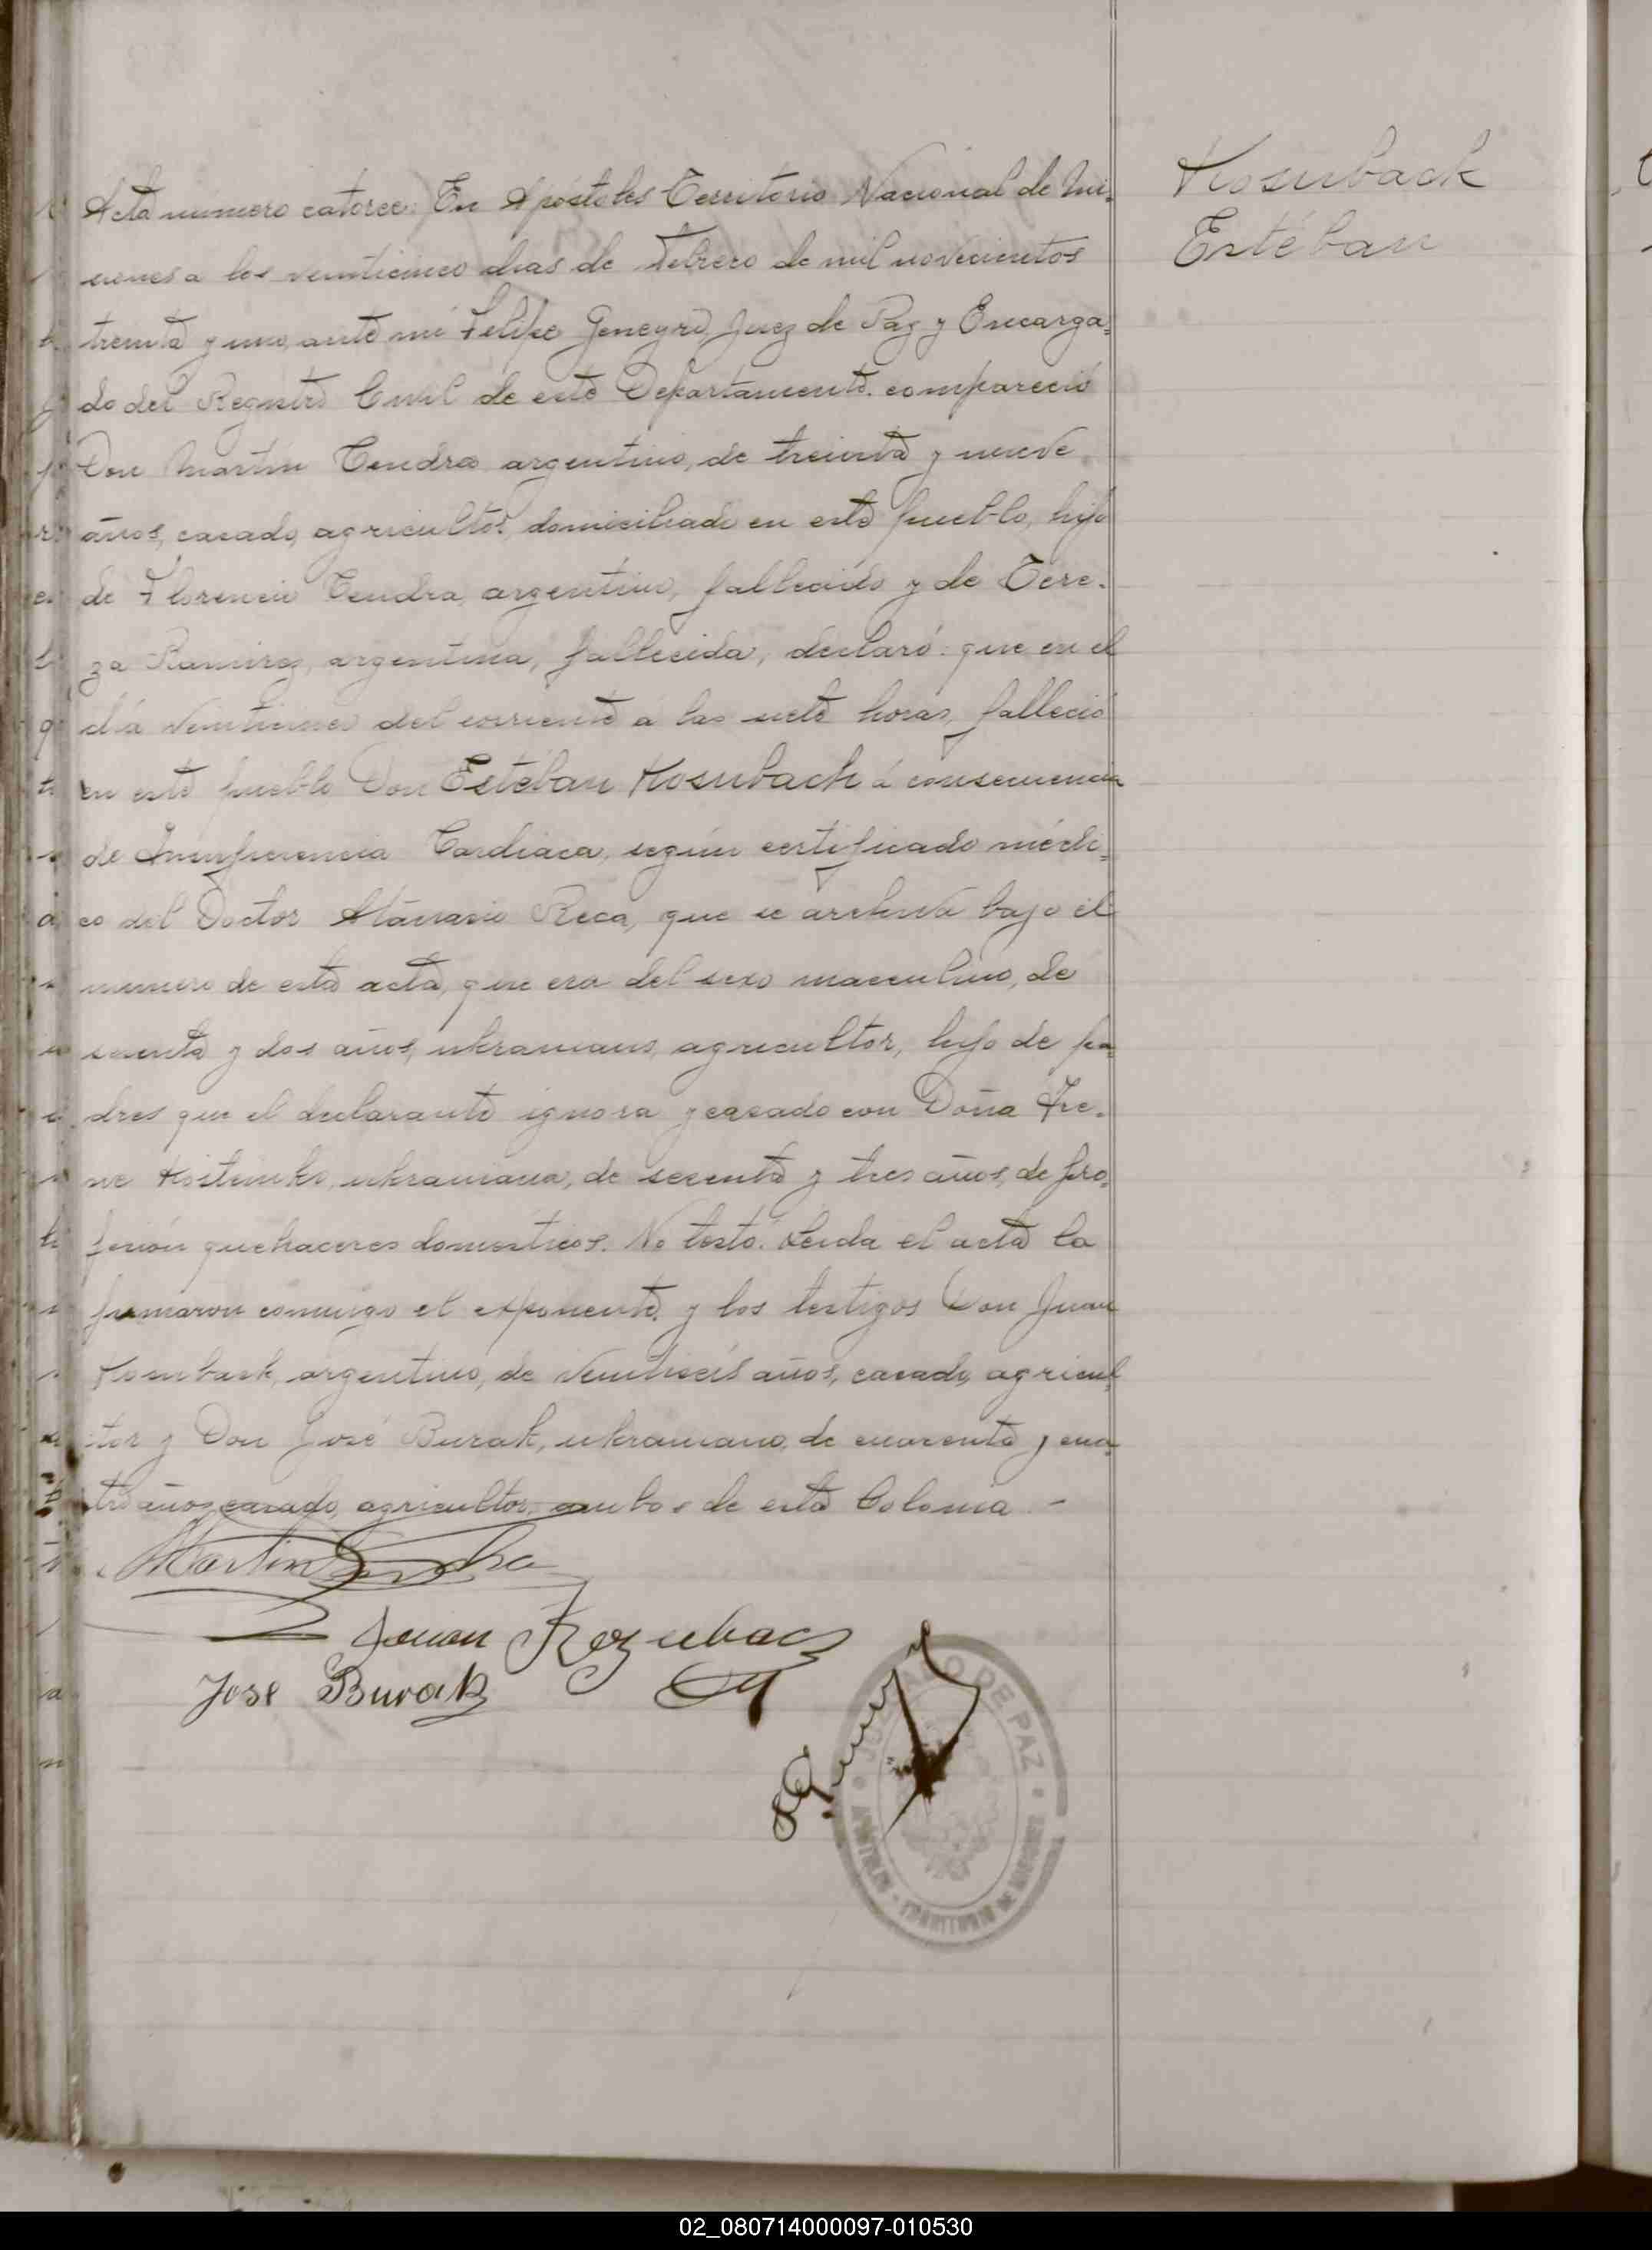 Kosubach
Estéban
Acta número catorce: En Apóstoles Territorio Nacional de Mi-
siones a los veinticinco dias de Febrero de mil novecientos
treinta y uno, ante mi Felipe Geneyro, Juez de Paz y Encarga-
do del Registro Civil de este Departamento. compareció
Don Martín Cendra argentino, de treinta y nueve
años, casado, agricultor, domiciliado en este pueblo, hijo
de Florencio Cendra, argentino, fallecido y de Tere-
za Ramirez, argentina, fallecida, declaró: que en el
día veinticinco del corriente á las siete horas, falleció
en este pueblo Don Estéban Kosubach á consecuencia
de Insuficiencia Cardiaca, según certificado médi-
co del Doctor Atanasio Reca, que se archiva bajo el
numero de esta acta, que era del sexo masculino, de
sesenta y dos años, ukraniano, agricultor, hijo de pa-
dres que el declarante ignora y casado con Doña Ire-
ne ukraniana, de sesenta y tres años, de pro-
fesión quehaceres domésticos. No testó. Leida el acta la
firmaron conmigo el exponente. y los testigos Don Juan
Kosubach, argentino, de veintiseis años, casado, agricul-
tor y Don José Burak, ukraniano, de cuarenta y cua-
tro años, casado, agricultor, ambos de esta Colonia. -
Martin Cendra
Juan Kozubach
Jose Burak
JUZGADO DE PAZ
APOSTOLES - TERRITORIO DE MISIONES
02_080714000097-010530